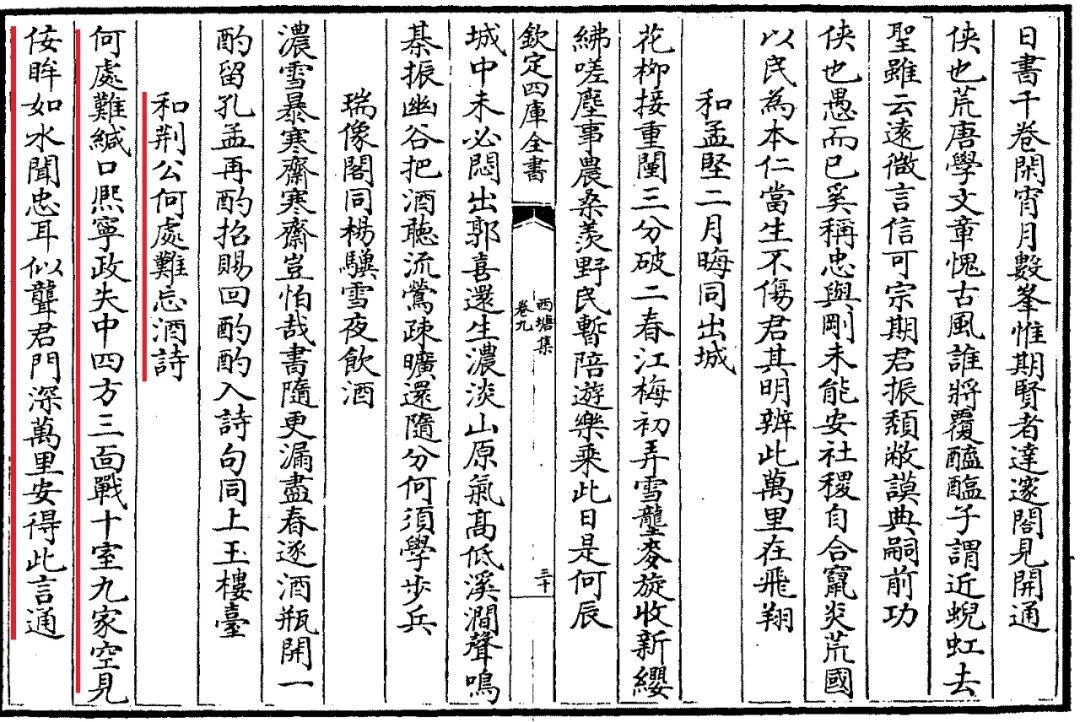 日書千卷閑宵月數峯惟期賢者達邃閣見開通
俠也荒唐學文章愧古風誰將覆子謂近蜺虹去
聖雖云遠微言信可宗期君振頽敝謨典嗣前功
俠也愚而已奚稱忠與剛未能安社稷自合竄炎荒國
以民為本仁當生不傷君其明辨此萬里在飛翔
和孟堅二月晦同出城
花柳接重闉三分破二春江梅初弄雪壟麥旋收新纓
紼嗟塵事農桑羨野民暫陪遊樂乘此日是何辰
欽定四庫全書
西塘集
卷九
三十
城中未必悶出郭喜還生濃淡山原氣高低溪澗聲鳴
棊振幽谷把酒聽流鶯疎曠還隨分何須學步兵
瑞像閣同楊驥雪夜飲酒
濃雪暴寒齋寒齋豈怕哉書隨更漏盡春逐酒瓶開一
酌留孔孟再酌招賜回酌酌入詩句同上玉樓臺
和荆公何處難忘酒詩
何處難緘口熈寧政失中四方三面戰十室九家空見
佞眸如水聞忠耳似聾君門深萬里安得此言通